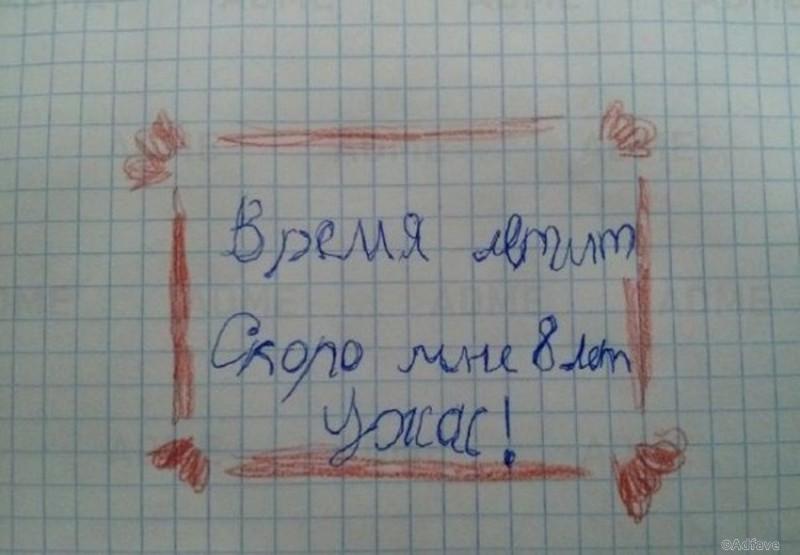 Время летит
Скоро мне 8 лет
Ужас!
©Adfave